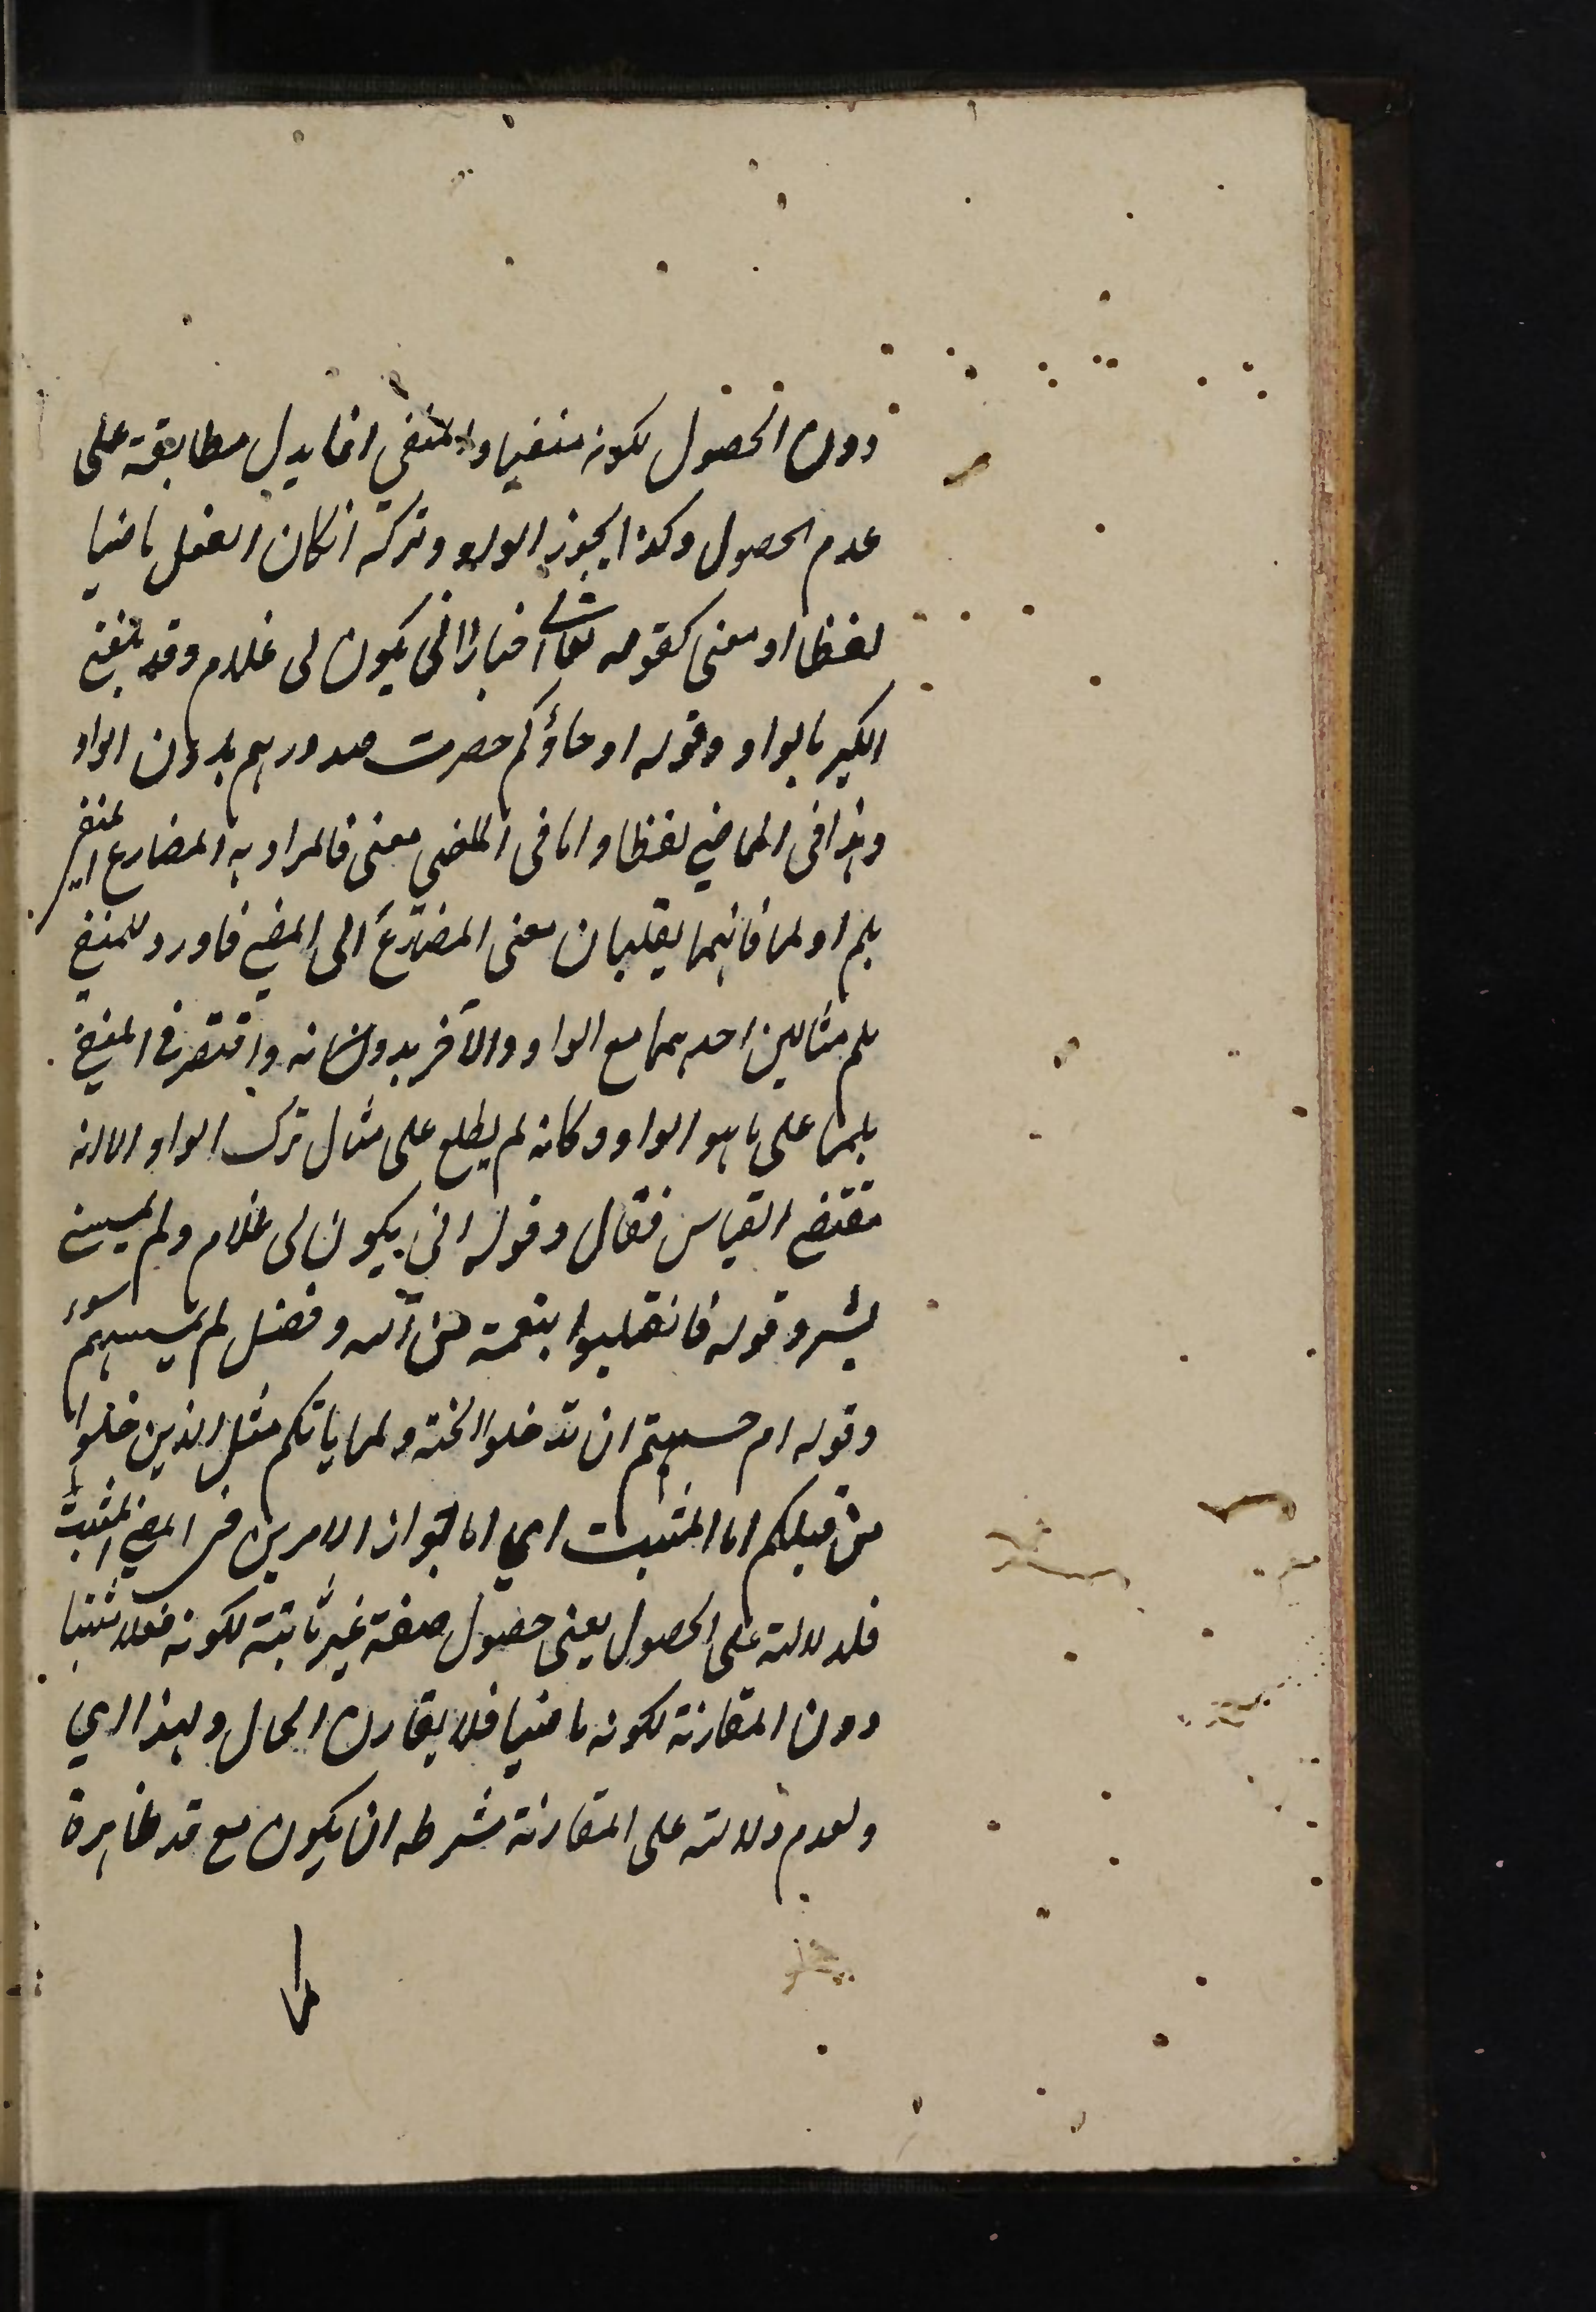 دون الحصول لكونه منفيا والمنفى انما يدل مطابقة على
عدم الحصول وكذا يجوز الواو وتركه انكان الفعل ماضيا
لفظا او معنى كقوله تعالى اخبارا انى يكون لى غلام وقد بلغنى
الكبر بالواو وقوله او جاؤكم حصرت صدورهم بدون الواو
وهذا فى الماضى لفظا واما فى الماضى معنى فالمراد به المضارع المنفى
بلم او لما فانهما يقلبان معنى المضارع الى المضى فاورد للمنفى
بلم مثالين احدهما مع الواو والآخر بدونه واقتصر فى المنفى
بلما على ما هو الواو وكانه لم يطلع على مثال ترك الواو الا انه
مقتضى القياس فقال وقوله انى يكون لى غلام ولم يمسسنى
بشر وقوله فانقلبوا بنعمة من الله وفضل لم يمسسهم سوء
وقوله ام حسبتم ان تدخلوا الجنة ولما ياتكم مثل الذين خلوا
من قبلكم اما المثبت اي اما جواز الامرين فى الماضى المثبت
فلدلالته على الحصول يعنى حصول صفة غير ثابتة لكونه فعلا مثبتا
دون المقارنة لكونه ماضيا فلا يقارن الحال ولهذا اي
ولعدم دلالته على المقارنة شرطه ان يكون مع قد ظاهرة